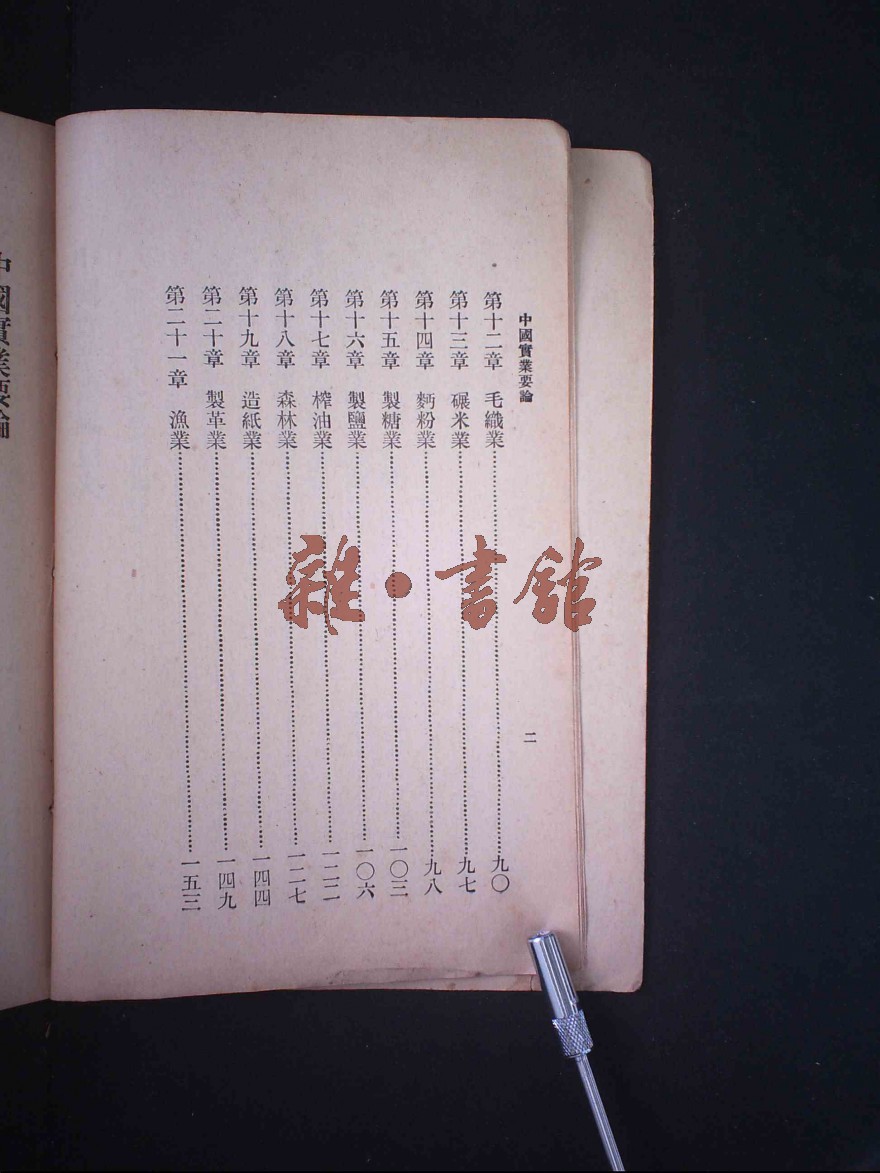 中國實業要論
二
第十二章 毛織業………九〇
第十三章 碾米業………九七
第十四章 麪粉業………九八
第十五章 製糖業………一〇三
第十六章 製鹽業………一〇六
第十七章 榨油業………一二二
第十八章 森林業………一二七
第十九章 造紙業………一四四
第二十章 製革業………一四九
第二十一章 漁業………一五三
雜·書館
中國實業要論